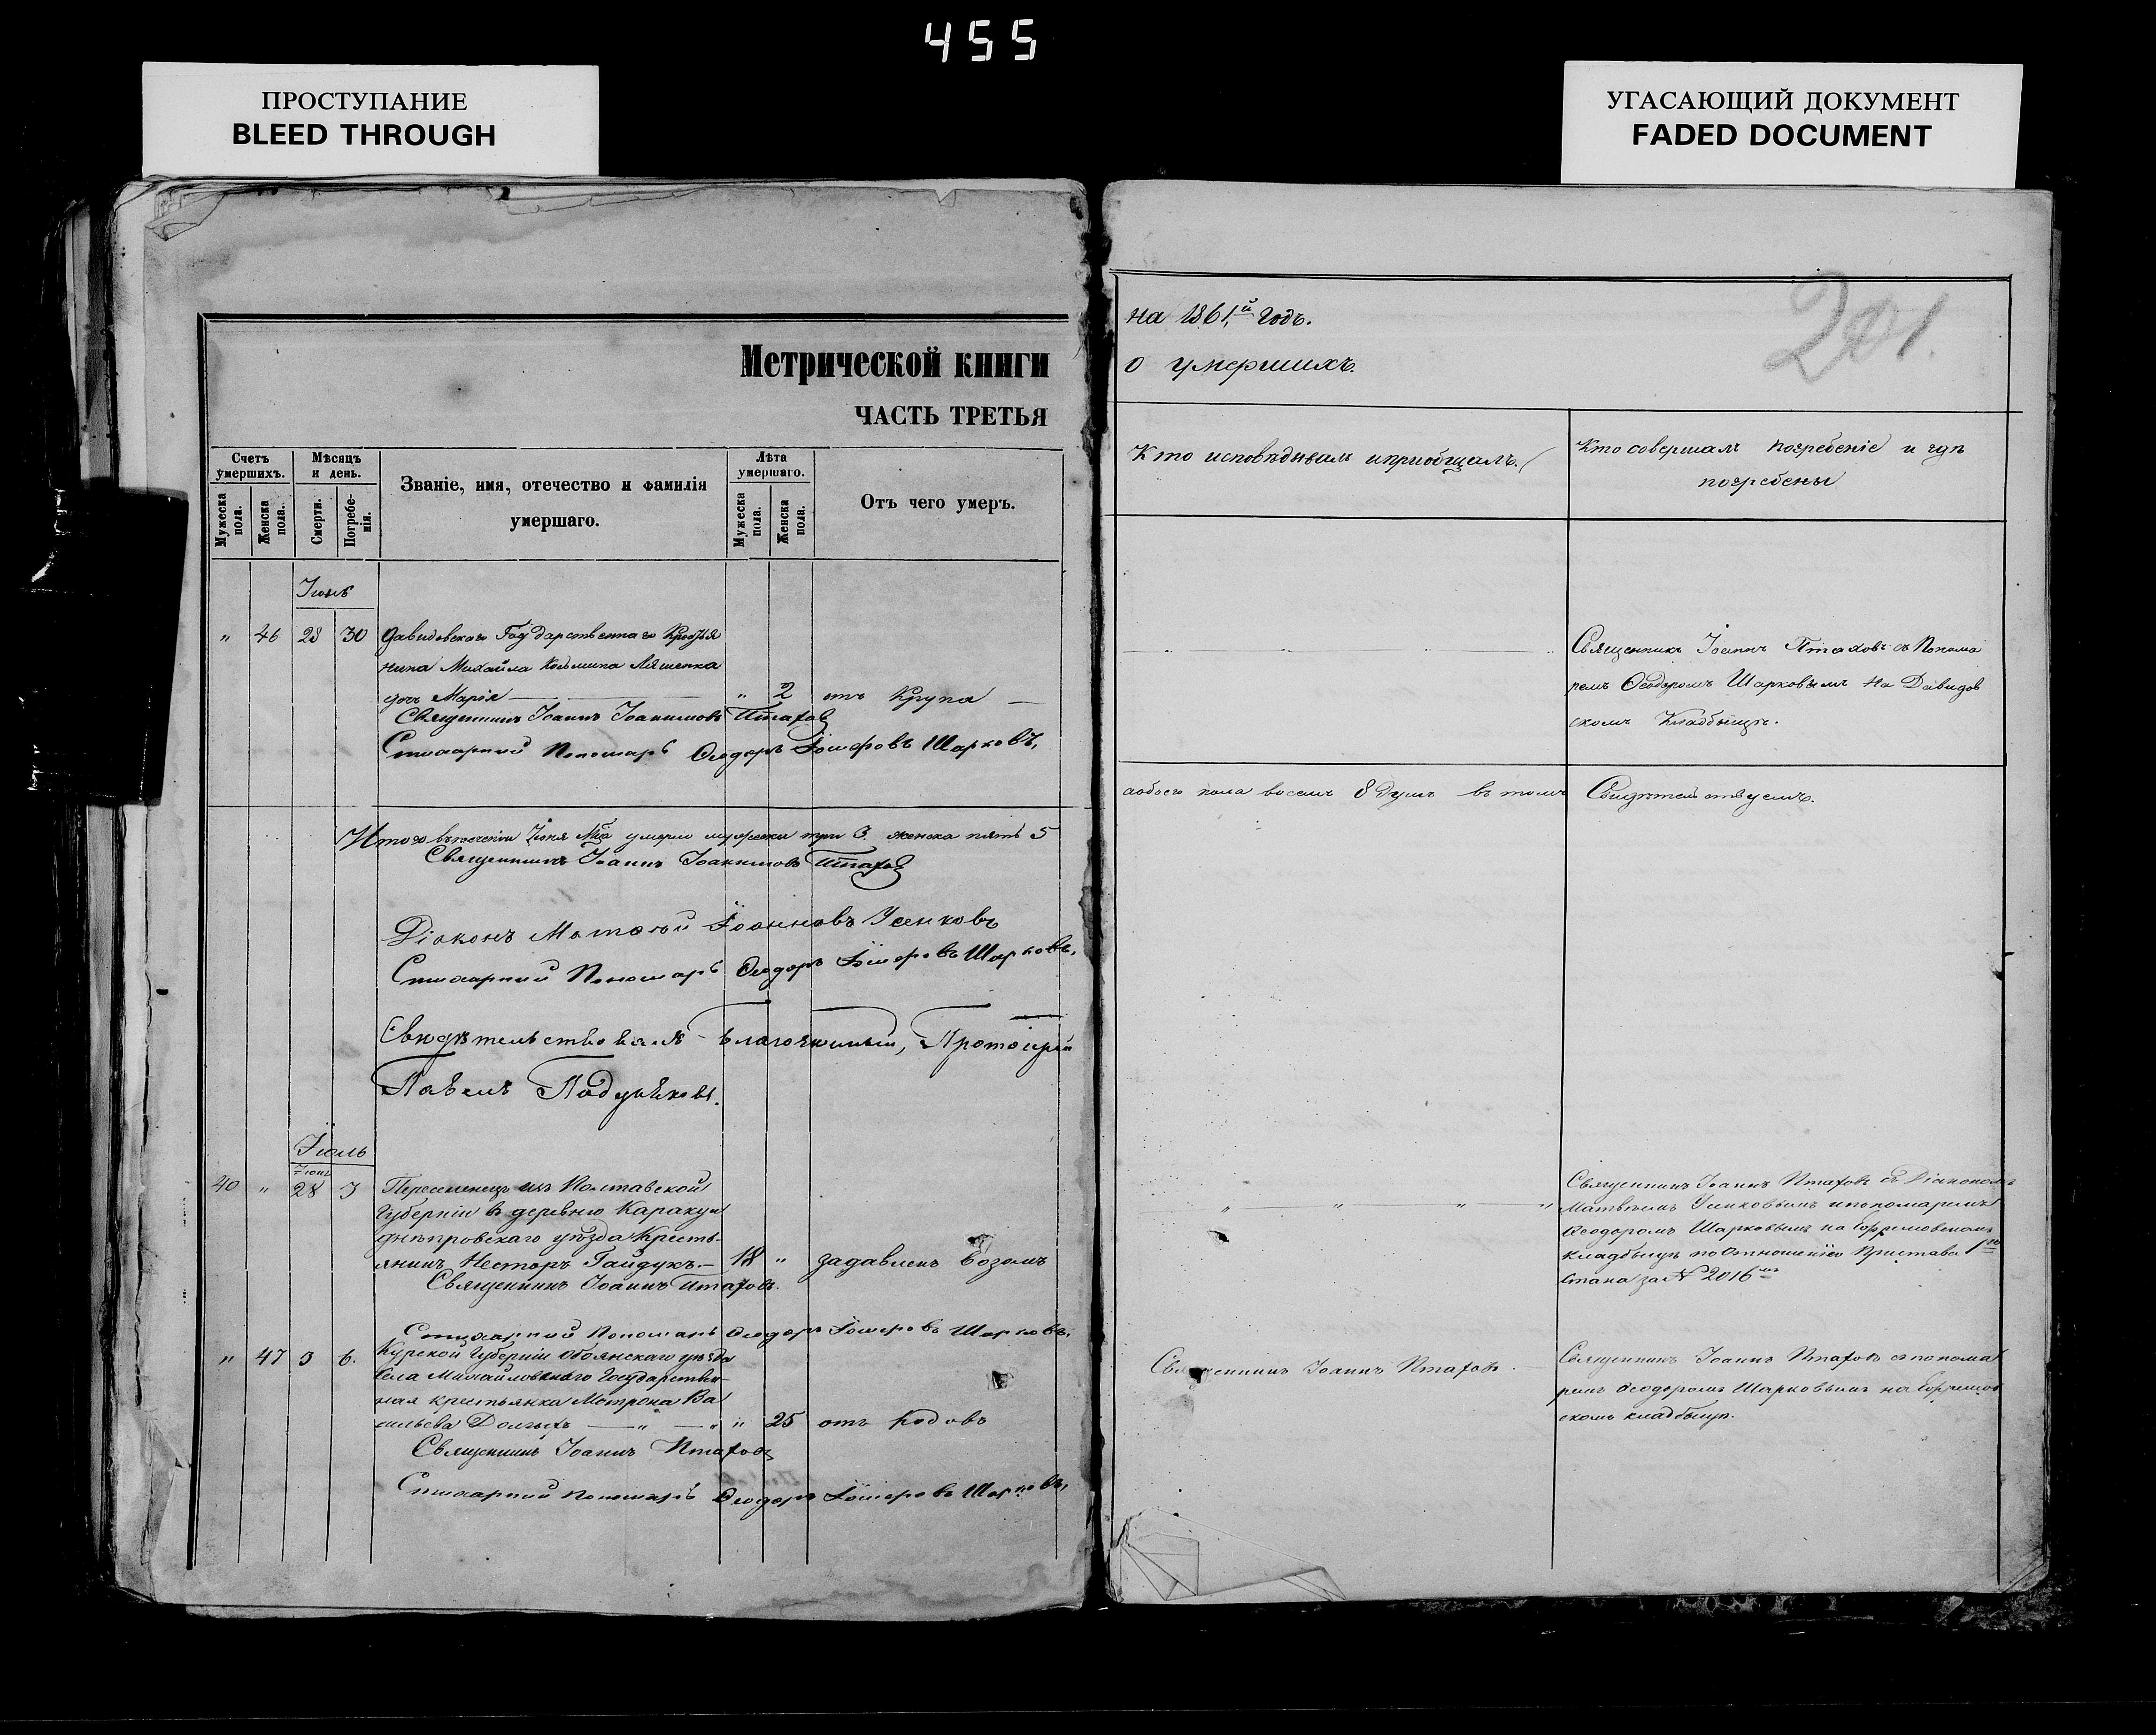 455
ПРОСТУПАНИЕ
BLEED THROUGH
УГАСАЮЩИЙ ДОКУМЕНТ
FADED DOCUMENT
Метрической книги
ЧАСТЬ ТРЕТЬЯ
Счетъ умершихъ.
Мужеска пола.
Женска пола.
Мѣсяцъ и день.
Смерти.
Погребенія.
Званіе, имя, отечество и фамилія
умершаго.
Лѣта умершаго.
Мужеска пола.
Женска пола.
Отъ чего умеръ.
Іюнь
" 46 28 30 Давидовскаго Государственнаго Крестья
нина Михайла Козьмина Ляшенка
дочь Марія " 2 отъ Крупа
Священникъ Іоаннъ Іоакимовъ Птаховъ
Стихарный Пономарь Ѳеодоръ Шарковъ,
Итого въ теченіи Іюня М-ца умерло мужеска три 3 женска пять 5
Священникъ Іоаннъ Іоакимовъ Птаховъ
Діаконъ Матѳей Іоанновъ Усенковъ
Стихарный Пономарь Ѳеодоръ Шарковъ,
Свидѣтельствовалъ Благочинный, Протоіерей
Павелъ
Іюль
Іюня
40 " 28 3 Переселенецъ изъ Полтавской
Губерніи въ деревню Каракуи
днѣпровскаго уѣзда Кресть-
янинъ Несторъ Гайдукъ.— 18 " задавленъ возомъ
Священникъ Іоаннъ Птаховъ.
Стихарный Пономарь Ѳеодоръ Шарковъ,
" 47 3 6. Курской Губерніи Обоянскаго уѣзда
Села Михайловскаго Государствен-
ная крестьянка Матрона Ва
сильева Долгихъ " " 25 отъ родовъ
Священникъ Іоаннъ Птаховъ
Стихарный Пономарь Ѳеодоръ Шарковъ,
на 1861й Годъ.
о умершихъ.
201.
Кто исповѣдывалъ и пріобщалъ.
Кто совершалъ погребеніе и гдѣ
погребены
Священникъ Іоаннъ Птаховъ съ Понома
ремъ Ѳеодоромъ Шарковымъ на Давидов
скомъ Кладбищѣ.
а обоего пола восемь 8 душъ въ томъ Свидѣтельствуемъ.
Священникъ Іоаннъ Птаховъ съ Діакономъ
Матвѣемъ Усенковымъ и пономаремъ
Ѳеодоромъ Шарковымъ на Ефремовскомъ
кладбищѣ по Отношенію Пристава 1го
Стана за № 2016мъ
Священникъ Іоаннъ Птаховъ.
Священникъ Іоаннъ Птаховъ съ понома
ремъ Ѳеодоромъ Шарковымъ на Ефремов
скомъ кладбищѣ.